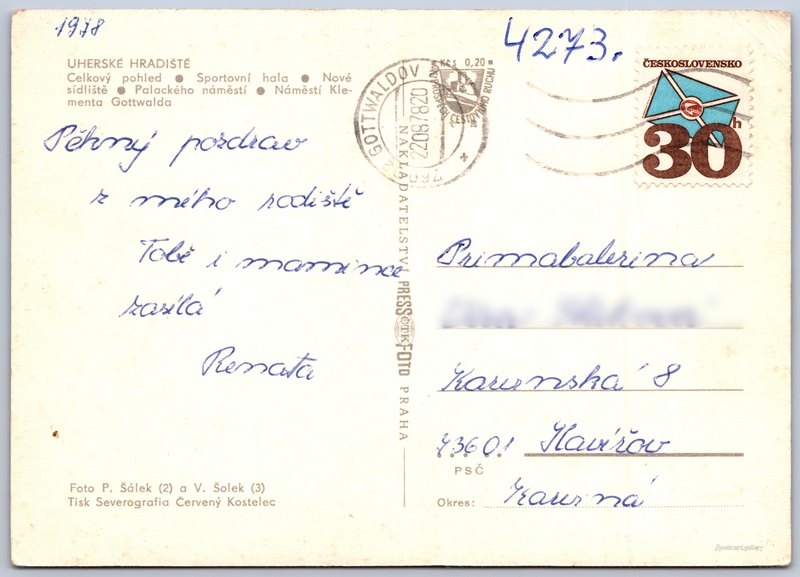 1978
4273.
UHERSKÉ HRADIŠTĚ
Celkový pohled ● Sportovní hala ● Nové
sídliště ● Palackého náměstí ● Náměstí Kle-
menta Gottwalda
Pěkný pozdrav
z mého rodiště
Tobě i mamince
zasílá
Renata
Foto P. Šálek (2) a V. Šolek (3)
Tisk Severografia Červený Kostelec
GOTTWALDOV
22.08.78.20
Kčs 0,20
CESTOVNÍHO RUCHU
NAKLADATELSTVÍ PRESSFOTO PRAHA
ČTK
ČESKOSLOVENSKO
30h
Primabalerina
Karvinská 8
73601 Havířov
PSČ
Okres: Karviná